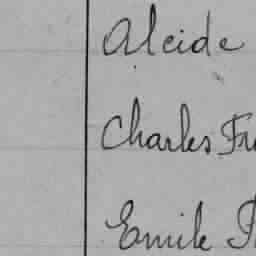 Alcide
Charles Fr
Emile